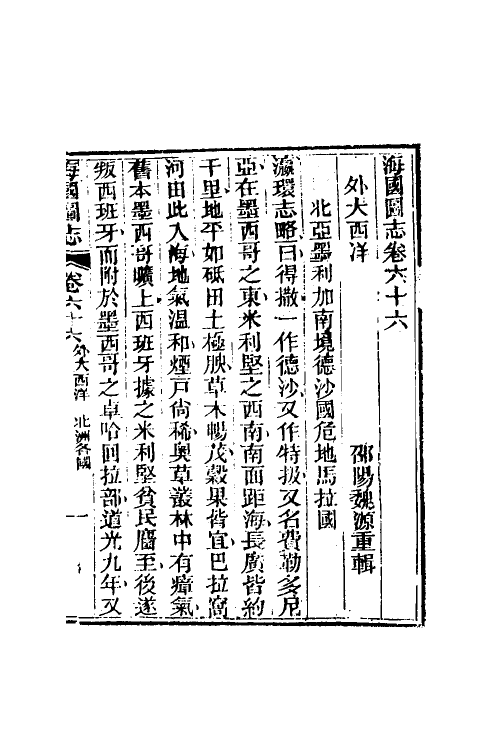 海國圖志卷六十六
外大西洋
邵陽魏源重輯
北亞墨利加南境德沙國危地馬拉國
瀛環志略曰得撒一作德沙又作特扱又名費勒多尼
亞在墨西哥之東米利堅之西南南面距海長廣皆約
千里地平如砥田土極腴草木暢茂穀果皆宜巴拉窩
河田此入海地氣溫和煙戶尙稀奧草叢林中有瘴氣
舊本墨西哥曠土西班牙據之米利堅貧民麕至後遂
叛西班牙而附於墨西哥之卓哈回拉部道光九年又
海國圖志
卷六十六
外大西洋 北洲各國
一